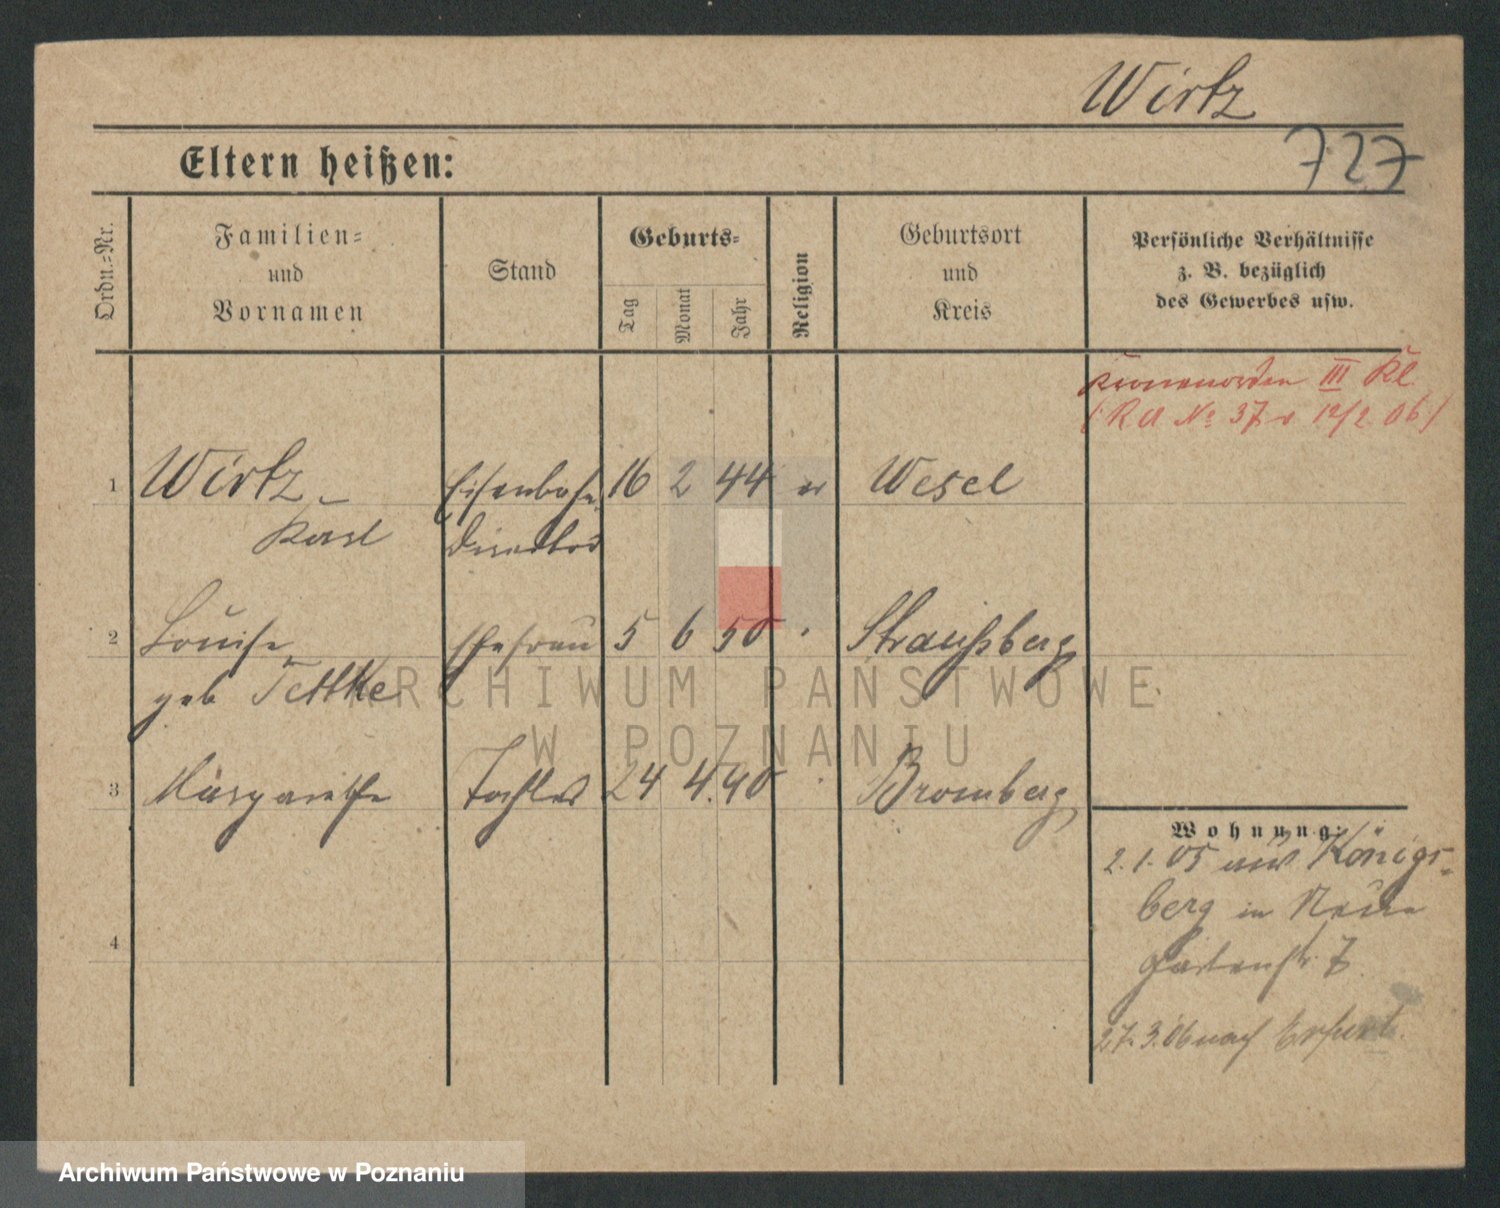 Wirtz
727
Eltern heißen:
Ordn.-Nr.
Familien-
und
Vornamen
Stand
Geburts-
Tag
Monat
Jahr
Religion
Geburtsort
und
Kreis
Persönliche Verhältnisse
z. B. bezüglich
des Gewerbes usw.
Kronenorden III Kl.
(R A No 37 v 12/2 06)
1 Wirtz Eisenbahn 16 2 44 ev Wesel
Karl Direktor
2 Louise Ehefrau 5 6 50 Straußberg
geb Tettke
3 Margarethe Tochter 24 4. 90 Bromberg
4
Wohnung:
2.1.05 aus Königs-
berg in Neue
Gartenstr. 7
27.3.06 nach Erfurt.
ARCHIWUM PAŃSTWOWE
W POZNANIU
Archiwum Państwowe w Poznaniu